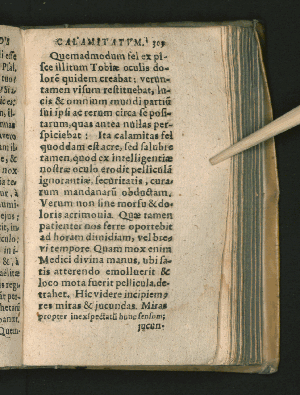 CALAMITATVM. 303
Quemadmodum fel ex pi-
sce illitum Tobiæ oculis do-
lorẽ quidem creabat; verun-
tamen visum restituebat, lu-
cis & omnium mundi partiũ
sui ipsi ac rerum circa se posi-
tarum, quas antea nullas per-
spiciebat: Ita calamitas fel
quoddam est acre, sed salubre
tamen, quod ex intelligentiæ
nostræ oculo erodit pelliculã
ignorantiæ, securitatis, cura-
rum mundanarũ obductam.
Verum non sine morsu & do-
loris acrimonia. Quæ tamen
patienter nos ferre oportebit
ad horam dimidiam, vel bre-
vi tempore. Quam mox enim
Medici divina manus, ubi sa-
tis atterendo emolluerit &
loco mota fuerit pellicula, de-
trahet. Hic videre incipiemꝰ
res miras & jucundas. Miras
propter inexspectatũ hunc sensum;
jucun-